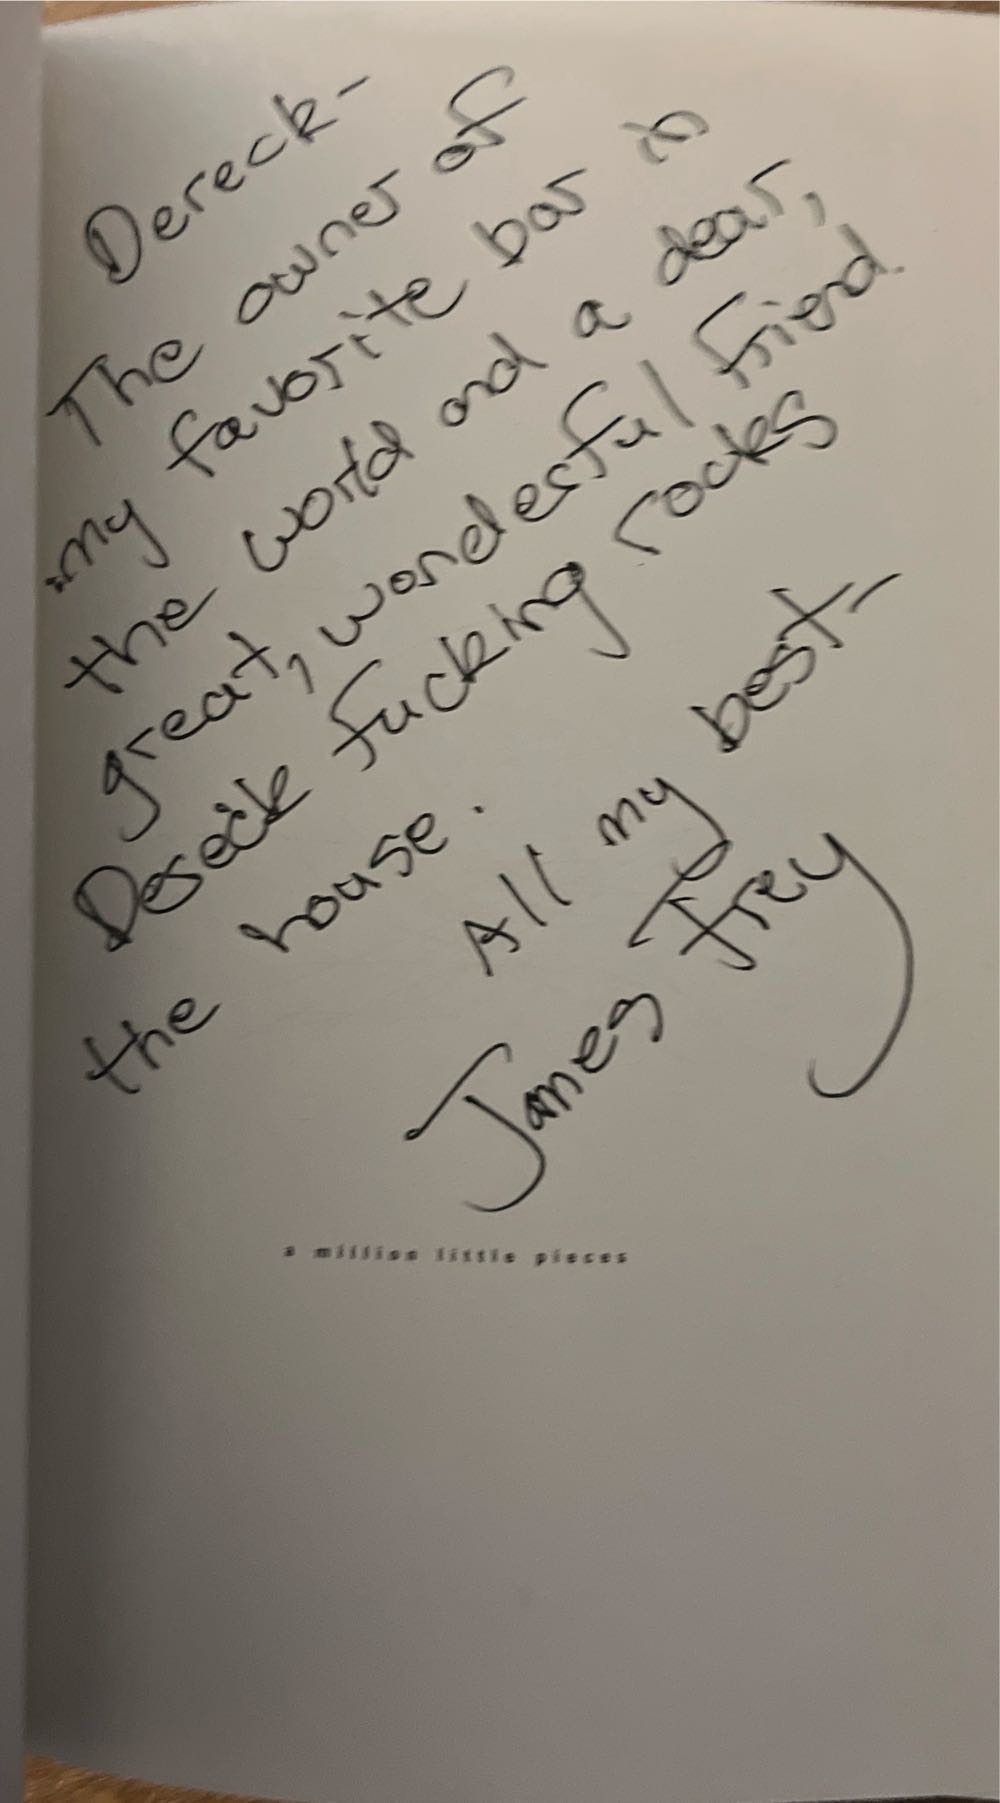 Dereck-
The owner of
my favorite bar in
the world and a dear,
great, wonderful friend.
Dereck fucking rocks
the house.
All my best-
James Frey
a million little pieces